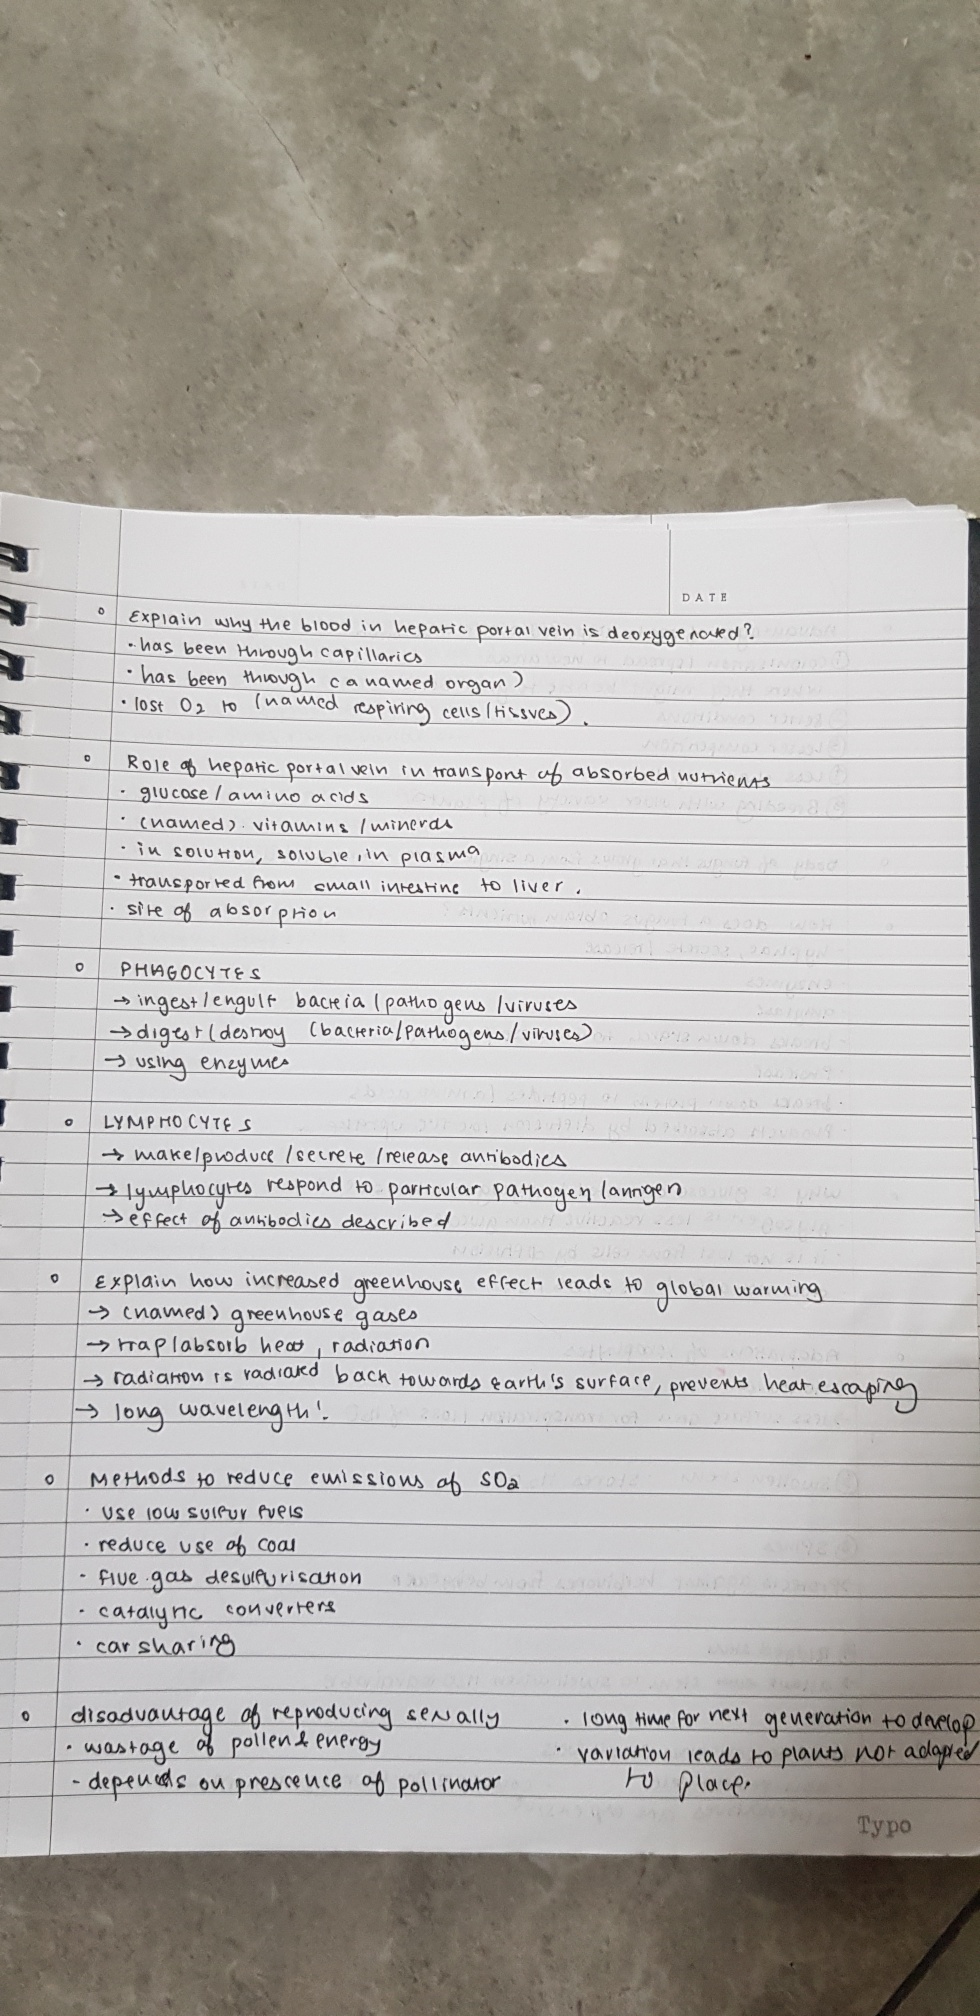 DATE
Explain why the blood in hepatic portal vein is deoxygenated?
· has been through capillaries
· has been through (a named organ)
· lost O2 to (named respiring cells/tissues).
Role of hepatic portal vein in transport of absorbed nutrients
· glucose / amino acids
· (named). vitamins / minerals
· in solution, soluble, in plasma
· transported from small intestine to liver.
· site of absorption
PHAGOCYTES
→ ingest/engulf bacteria/pathogens/viruses
→ digest/destroy (bacteria/pathogens/viruses)
→ using enzymes
LYMPHOCYTES
→ make/produce/secrete/release antibodies
→ lymphocytes respond to particular pathogen/antigen
→ effect of antibodies described
Explain how increased greenhouse effect leads to global warming
→ (named) greenhouse gases
→ trap/absorb heat, radiation
→ radiation is radiated back towards earth's surface, prevents heat escaping
→ long wavelength!
Methods to reduce emissions of SO2
· use low sulfur fuels
· reduce use of coal
· flue gas desulfurisation
· catalytic converters
· car sharing
disadvantage of reproducing sexually
· wastage of pollen & energy
· depends on prescence of pollinator
· long time for next generation to develop
· variation leads to plants not adapted
to place.
Typo